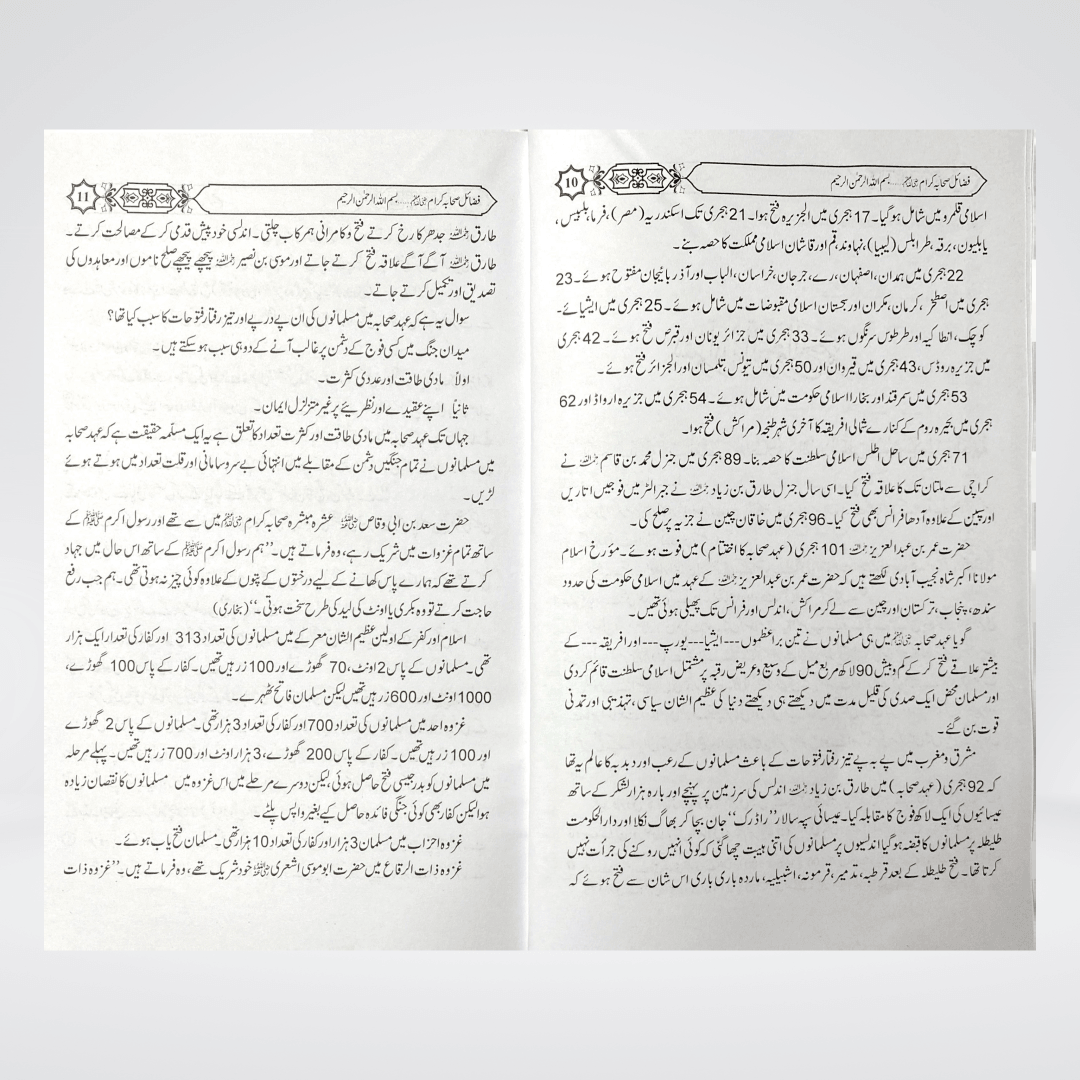 10
فضائل صحابہ کرام رضی اللہ عنہم ..... بسم اللہ الرحمٰن الرحیم
اسلامی قلمرو میں شامل ہوگیا۔ 17 ہجری میں الجزیرہ فتح ہوا۔ 21 ہجری تک اسکندریہ (مصر)، فرما، بلبیس،
بابلیون، برقہ، طرابلس (لیبیا)، نہاوند، قم اور قاشان اسلامی مملکت کا حصہ بنے۔
22 ہجری میں ہمدان، اصفہان، رے، جرجان، خراسان، الباب اور آذربائیجان مفتوح ہوئے۔ 23
ہجری میں اصطخر، کرمان، مکران اور سجستان اسلامی مقبوضات میں شامل ہوئے۔ 25 ہجری میں ایشیائے۔
کوچک، انطاکیہ اور طرطوس سرنگوں ہوئے۔ 33 ہجری میں جزائر یونان اور قبرص فتح ہوئے۔ 42 ہجری
میں جزیرہ روڈس، 43 ہجری میں قیروان اور 50 ہجری میں تیونس، تلمسان اور الجزائر فتح ہوئے۔
53 ہجری میں سمرقند اور بخارا اسلامی حکومت میں شامل ہوئے۔ 54 ہجری میں جزیرہ ارواڈ اور 62
ہجری میں بحیرہ روم کے کنارے شمالی افریقہ کا آخری شہر طنجہ (مراکش) فتح ہوا۔
71 ہجری میں ساحل اطلس اسلامی سلطنت کا حصہ بنا۔ 89 ہجری میں جنرل محمد بن قاسم رحمہ اللہ نے
کراچی سے ملتان تک کا علاقہ فتح کیا۔ اسی سال جنرل طارق بن زیاد رحمہ اللہ نے جبرالٹر میں فوجیں اتاریں
اور سپین کے علاوہ آدھا فرانس بھی فتح کیا۔ 96 ہجری میں خاقان چین نے جزیہ پر صلح کی۔
حضرت عمر بن عبدالعزیز رحمہ اللہ 101 ہجری (عہد صحابہ کا اختتام) میں فوت ہوئے۔ مؤرخ اسلام
مولانا اکبر شاہ نجیب آبادی لکھتے ہیں کہ حضرت عمر بن عبدالعزیز رحمہ اللہ کے عہد میں اسلامی حکومت کی حدود
سندھ، پنجاب، ترکستان اور چین سے لے کر مراکش، اندلس اور فرانس تک پھیلی ہوئی تھیں۔
گویا عہد صحابہ رضی اللہ عنہم میں ہی مسلمانوں نے تین براعظموں --- ایشیا --- یورپ --- اور افریقہ --- کے
بیشتر علاقے فتح کر کے کم و بیش 90 لاکھ مربع میل کے وسیع و عریض رقبہ پر مشتمل اسلامی سلطنت قائم کر دی
اور مسلمان محض ایک صدی کی قلیل مدت میں دیکھتے ہی دیکھتے دنیا کی عظیم الشان سیاسی، تہذیبی اور تمدنی
قوت بن گئے۔
مشرق و مغرب میں پے بہ پے تیز رفتار فتوحات کے باعث مسلمانوں کے رعب اور دبدبہ کا عالم یہ تھا
کہ 92 ہجری (عہد صحابہ) میں طارق بن زیاد رحمہ اللہ اندلس کی سرزمین پر پہنچے اور بارہ ہزار لشکر کے ساتھ
عیسائیوں کی ایک لاکھ فوج کا مقابلہ کیا۔ عیسائی سپہ سالار ’’راڈرک‘‘ جان بچا کر بھاگ نکلا اور دارالحکومت
طلیطلہ پر مسلمانوں کا قبضہ ہو گیا اندلسیوں پر مسلمانوں کی اتنی ہیبت چھا گئی کہ کوئی انہیں روکنے کی جرأت نہیں
کرتا تھا۔ فتح طلیطلہ کے بعد قرطبہ، تدمیر، قرمونہ، اشبیلیہ، ماردہ باری باری اس شان سے فتح ہوئے کہ
11
فضائل صحابہ کرام رضی اللہ عنہم ..... بسم اللہ الرحمٰن الرحیم
طارق رحمہ اللہ جدھر کا رخ کرتے فتح و کامرانی ہمرکاب چلتی۔ اندلسی خود پیش قدمی کر کے مصالحت کرتے۔
طارق رحمہ اللہ آگے آگے علاقہ فتح کرتے جاتے اور موسی بن نصیر رحمہ اللہ پیچھے پیچھے صلح ناموں اور معاہدوں کی
تصدیق اور تکمیل کرتے جاتے۔
سوال یہ ہے کہ عہد صحابہ میں مسلمانوں کی ان پے در پے اور تیز رفتار فتوحات کا سبب کیا تھا؟
میدان جنگ میں کسی فوج کے دشمن پر غالب آنے کے دو ہی سبب ہو سکتے ہیں۔
اولاً مادی طاقت اور عددی کثرت۔
ثانیاً اپنے عقیدے اور نظریئے پر غیر متزلزل ایمان۔
جہاں تک عہد صحابہ میں مادی طاقت اور کثرت تعداد کا تعلق ہے یہ ایک مسلّمہ حقیقت ہے کہ عہد صحابہ
میں مسلمانوں نے تمام جنگیں دشمن کے مقابلے میں انتہائی بے سروسامانی اور قلت تعداد میں ہوتے ہوئے
لڑیں۔
حضرت سعد بن ابی وقاص رضی اللہ عنہ عشرہ مبشرہ صحابہ کرام رضی اللہ عنہم میں سے تھے اور رسول اکرم ﷺ کے
ساتھ تمام غزوات میں شریک رہے، وہ فرماتے ہیں۔ ’’ہم رسول اکرم ﷺ کے ساتھ اس حال میں جہاد
کرتے تھے کہ ہمارے پاس کھانے کے لیے درختوں کے پتوں کے علاوہ کوئی چیز نہ ہوتی تھی۔ ہم جب رفع
حاجت کرتے تو وہ بکری یا اونٹ کی لید کی طرح سخت ہوتی۔‘‘ (بخاری)
اسلام اور کفر کے اولین عظیم الشان معرکے میں مسلمانوں کی تعداد 313 اور کفار کی تعداد ایک ہزار
تھی۔ مسلمانوں کے پاس 2 اونٹ، 70 گھوڑے اور 100 زرہیں تھیں۔ کفار کے پاس 100 گھوڑے،
1000 اونٹ اور 600 زرہیں تھیں لیکن مسلمان فاتح ٹھہرے۔
غزوہ احد میں مسلمانوں کی تعداد 700 اور کفار کی تعداد 3 ہزار تھی۔ مسلمانوں کے پاس 2 گھوڑے
اور 100 زرہیں تھیں۔ کفار کے پاس 200 گھوڑے، 3 ہزار اونٹ اور 700 زرہیں تھیں۔ پہلے مرحلہ
میں مسلمانوں کو بدر جیسی فتح حاصل ہوئی، لیکن دوسرے مرحلے میں اس غزوہ میں مسلمانوں کا نقصان زیادہ
ہوا لیکن کفار بھی کوئی جنگی فائدہ حاصل کیے بغیر واپس پلٹے۔
غزوہ احزاب میں مسلمان 3 ہزار اور کفار کی تعداد 10 ہزار تھی۔ مسلمان فتح یاب ہوئے۔
غزوہ ذات الرقاع میں حضرت ابو موسی اشعری رضی اللہ عنہ خود شریک تھے، وہ فرماتے ہیں۔ ’’غزوہ ذات